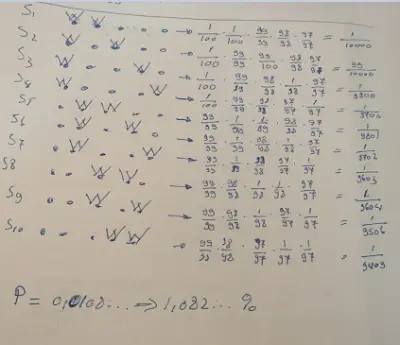 S1 W W . . . → 1/100 · 1/100 · 99/99 · 98/98 · 97/97 = 1/10000
S2 W . W . . → 1/100 · 99/99 · 99/100 · 98/98 · = 99/10000
S3 → 1/100 · 99/99 · 98/98 · 1/98 · 97/97 = 1/9800
S4 → 1/100 · 99/99 · 98/98 · 97/97 · 1/97 = 1/9700
S5 → 99/99 · 1/99 · 1/99 · 98/98 · 97/97 = 1/9801
S6 → 99/99 · 1/99 · 98/98 · 1/98 · 97/97 = 1/9702
S7 → 99/99 · 1/99 · 98/98 · 97/97 · 1/97 = 1/9603
S8 → 99/99 · 98/98 · 1/98 · 1/98 · 97/97 = 1/9604
S9 → 99/99 · 98/98 · 1/98 · 97/97 · 1/97 = 1/9506
S10 → 99/99 · 98/98 · 97/97 · 1/97 · 1/97 = 1/9409
P = 0,0108... ⇒ 1,082... %